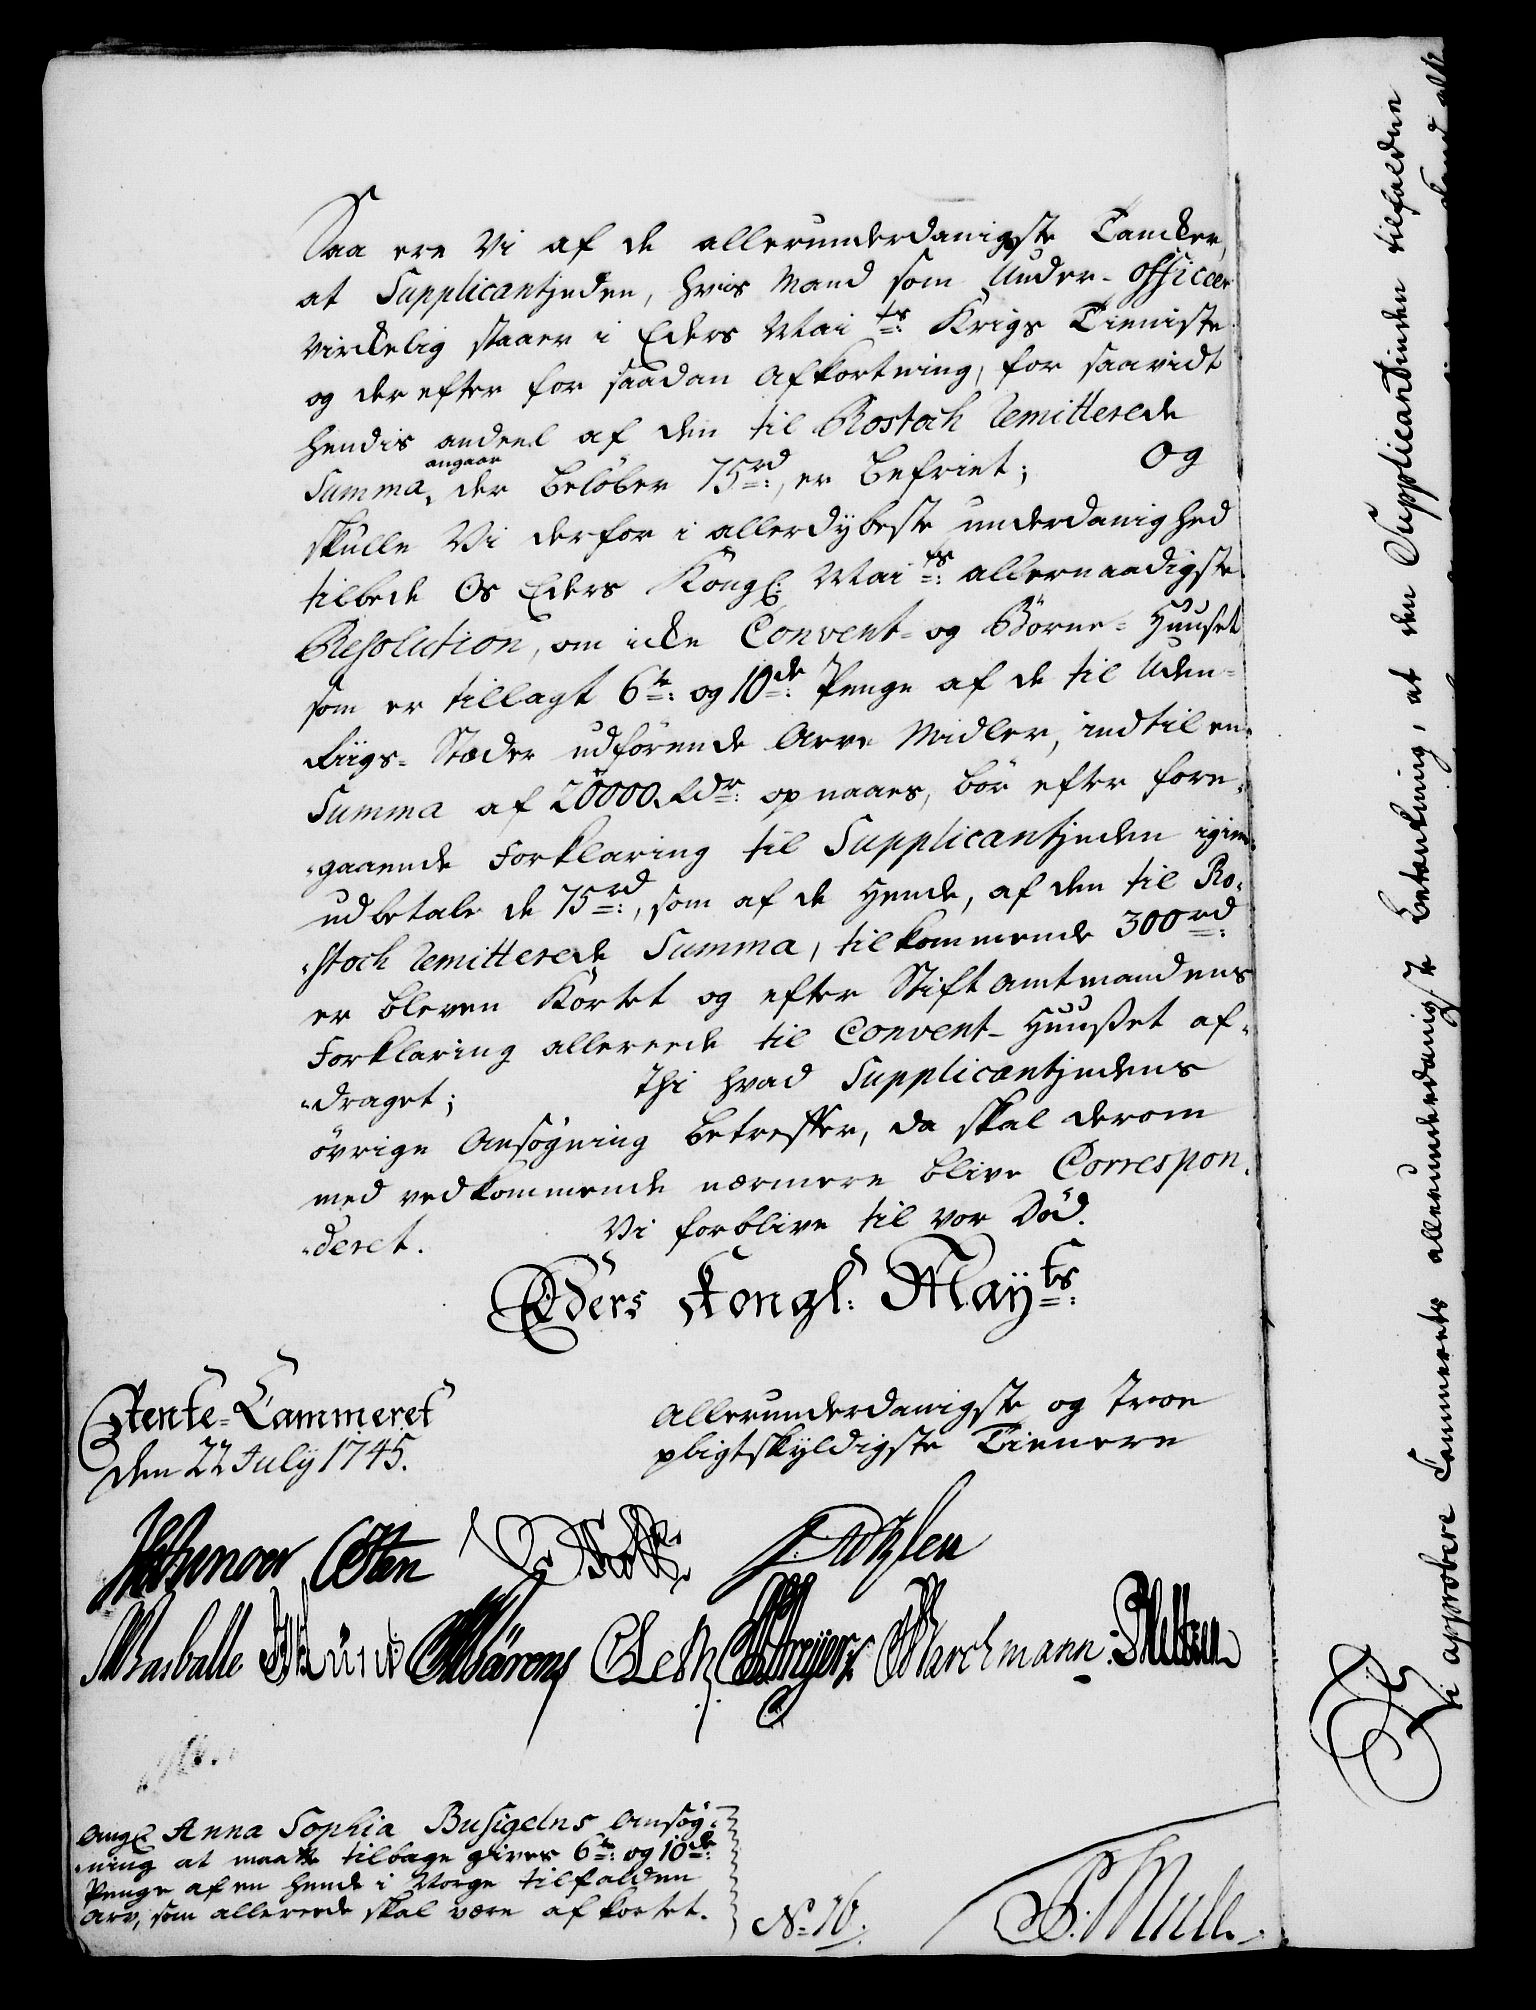 Saa ere Vi af de allerunderdanigste Tancker,
at Supplicantinden, hvis Mand som Under-Officeer
virckelig staaer i Eders Maits: Krigs Tieniste
og derefter for saadan Afkortning, for saavidt
hendis andeel af den til Rostoch remitterede
Summa angaar, der beløber 75rd:, er befriet; og
skulle Vi derfor i allerdybeste underdanighed
tilbede Os Eders Kongl: Maits: allernaadigste
Resolution, om icke Convent- og Börne-Huuset
som er tillagt 6te: og 10de: Penge af de til Uden-
-rigs-Stæder udförende Arve Midler, indtil en
Summa af 20000 Rdr: opnaaes, bör efter fore-
-gaaende Forklaring til Supplicantinden igien
udbetale de 75rd:, som af de Hende, af den til Ro-
-stoch remitterede Summa, tilkommende 300rd:
er bleven Kortet og efter Stiftamtmandens
Forklaring allereede til Convent-Huuset af-
-draget; Thi hvad Supplicantindens
övrige Ansögning betreffer, da skal derom
med vedkommende nærmere blive Correspon-
-deret. Vi forblive til vor Död.
Eders Kongl: Mayts:
Rente-Cammeret
den 22 July 1745.
allerunderdanigste og troe
pligtskyldigste Tienere
Marchmann
Angl Anna Sophia Busigelns Ansøg-
-ning at maatte tilbage gives 6te: og 10de:
Penge af en hende i Norge tilfalden
Arv, som allereede skal være afkortet.
No 16.
Vi approbere Cammerets allerunderdanigste Betenkning, at den Supplicantinden tilfaldne